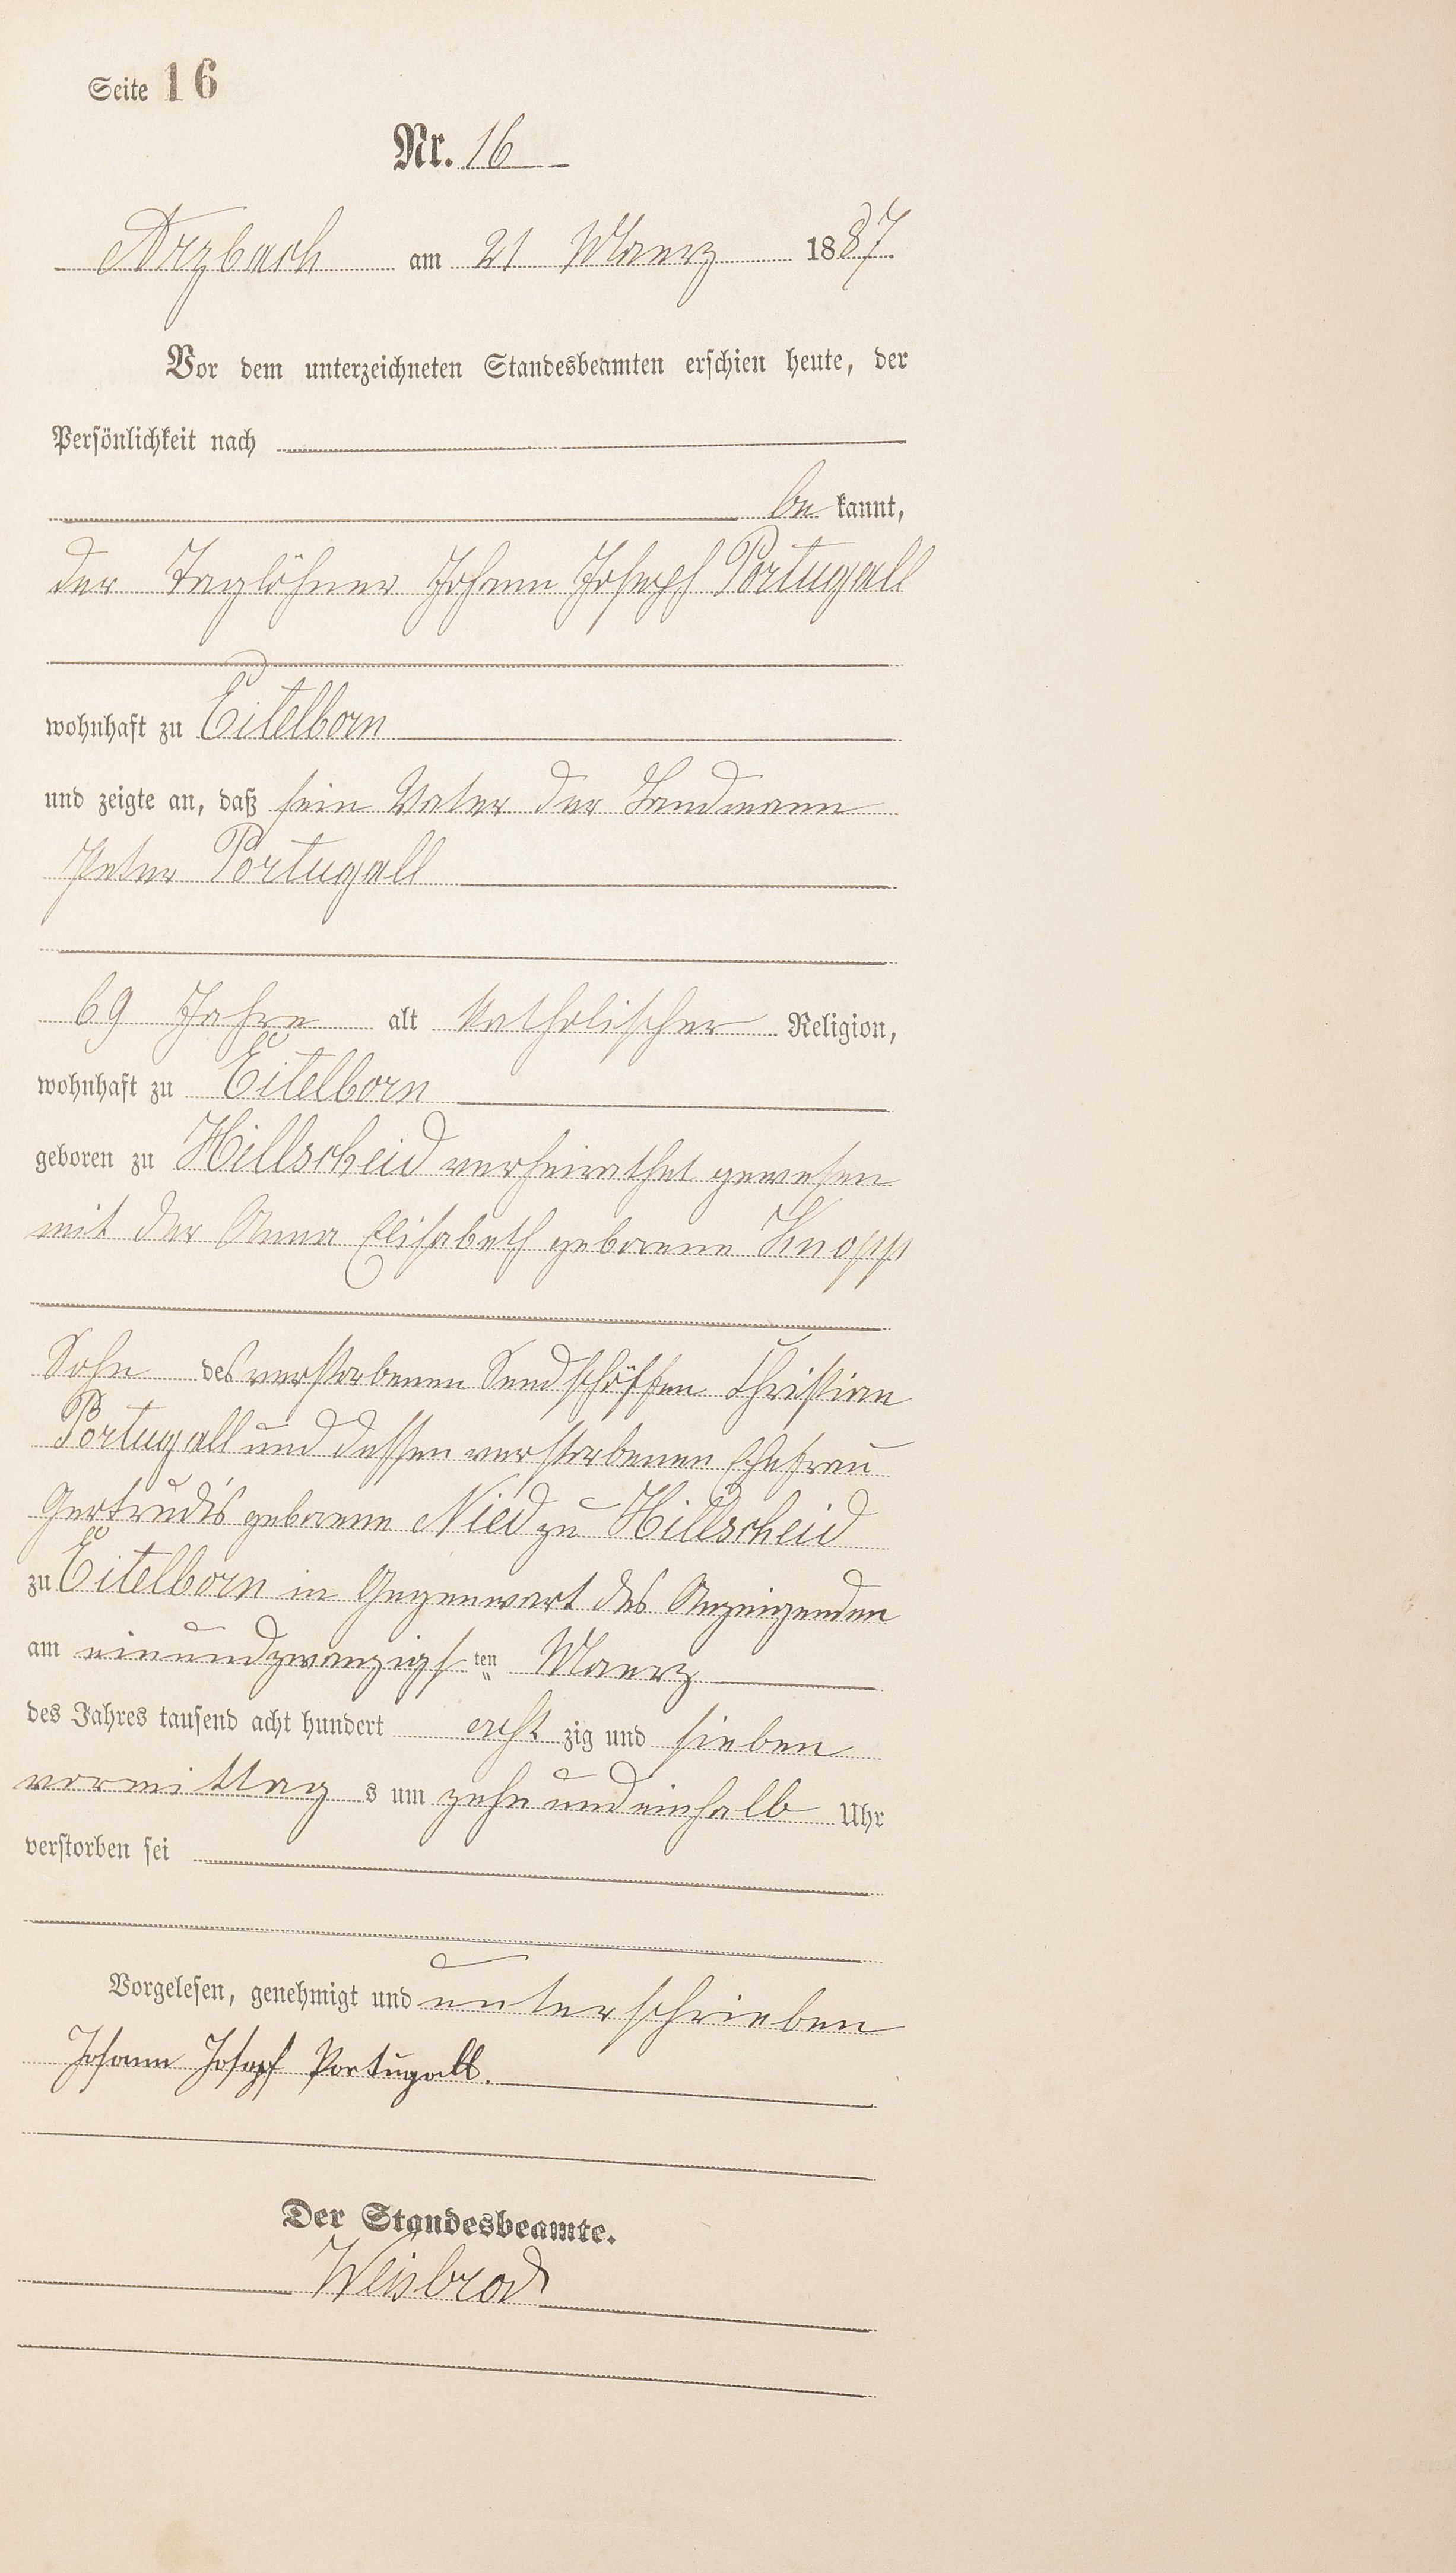 Seite 16
Nr. 16
Arzbach am 21 Maerz 1887.
Vor dem unterzeichneten Standesbeamten erschien heute, der
Persönlichkeit nach
be kannt,
der Taglöhner Johann Joseph Portugall
wohnhaft zu Eitelborn
und zeigte an, daß sein Vater der Landmann
Peter Portugall
69 Jahre alt katholischer Religion,
wohnhaft zu Eitelborn
geboren zu Hillscheid verheirathet gewesen
mit der Anna Elisabeth geborene Knopp
Sohn des verstorbenen Sendschöffen Christian
Portugall und dessen verstorbenen Ehefrau
Gertrudis geborene Nied zu Hillscheid
zu Eitelborn in Gegenwart des Anzeigenden
am einundzwanzigs ten Maerz
des Jahres tausend acht hundert acht zig und sieben
vormittag s um zehn und einhalb Uhr
verstorben sei
Vorgelesen, genehmigt und unterschrieben
Johann Josepf Portugall.
Der Standesbeamte.
Weisbrod